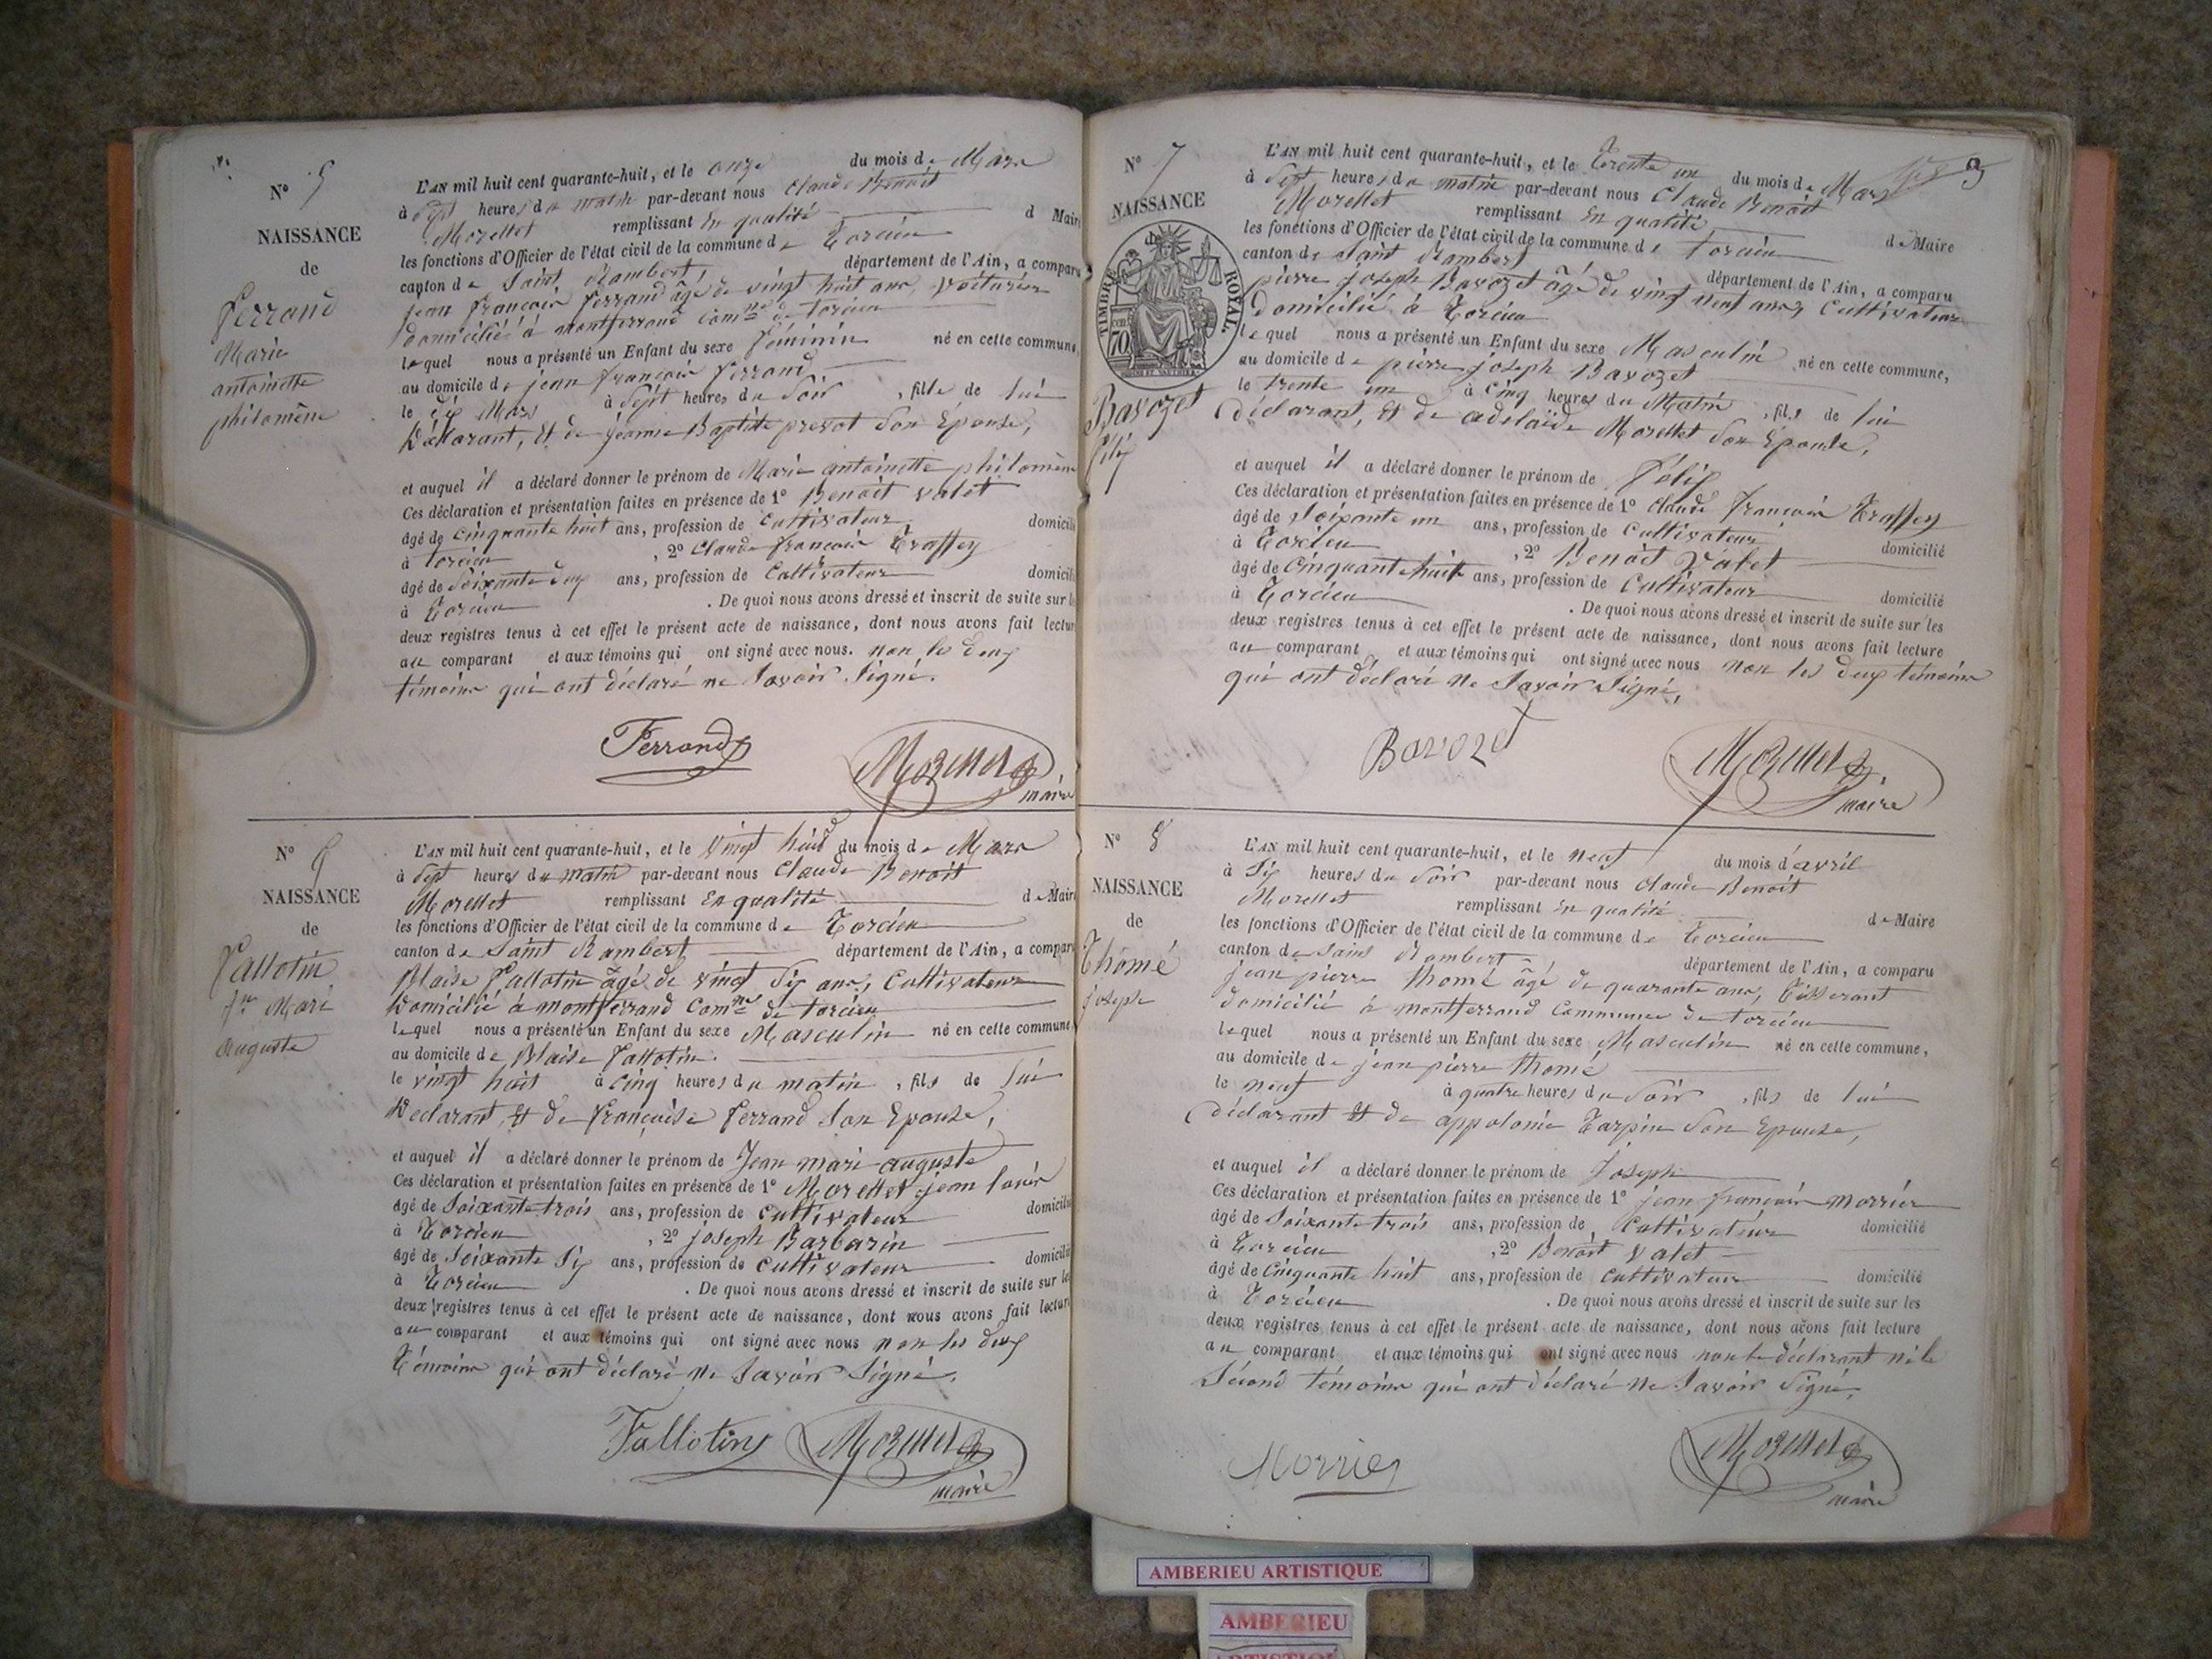 N° 5
NAISSANCE
de
Ferrand
Marie
antoinette
philomène
L'AN mil huit cent quarante-huit, et le onze du mois de Mars
à Sept heures du matin par-devant nous Claude Benoit
Morellet remplissant En qualité d Maire
les fonctions d'Officier de l'état civil de la commune de Torcieu
canton de Saint Rambert, département de l'Ain, a comparu
jean françois ferrand âgé de vingt huit ans, voiturier
domicilié à montferrand Com.ne de torcieu
lequel nous a présenté un Enfant du sexe féminin né en cette commune,
au domicile de jean françois ferrand
le dix Mars à Sept heures du Soir, fille de lui
Déclarant, Et de jeanne Baptiste prevot Son Epouse,
et auquel il a déclaré donner le prénom de Marie antoinette philomène
Ces déclaration et présentation faites en présence de 1° Benoit valet
âgé de cinquante huit ans, profession de Cultivateur domicilié
à torcieu, 2° Claude françois Traffey
âgé de Soixante deux ans, profession de Cultivateur domicilié
à Torcieu. De quoi nous avons dressé et inscrit de suite sur les
deux registres tenus à cet effet le présent acte de naissance, dont nous avons fait lecture
au comparant et aux témoins qui ont signé avec nous. non les deux
témoins qui ont déclaré ne Savoir Signé.
Ferrand
Morellet
maire
N° 6
NAISSANCE
de
Tallotin
jn Mari
auguste
L'AN mil huit cent quarante-huit, et le Vingt huit du mois de Mars
à Sept heures du matin par-devant nous Claude Benoit
Morellet remplissant En qualité de Maire
les fonctions d'Officier de l'état civil de la commune de Torcieu
canton de Saint Rambert département de l'Ain, a comparu
Blaise Tallotin âgé de vingt Six ans, Cultivateur
Domicilié à montferrand Com.ne de torcieu
lequel nous a présenté un Enfant du sexe Masculin né en cette commune
au domicile de Blaise Tallotin.
le vingt huit à Cinq heures du matin, fils de lui
Declarant, Et de françoise ferrand Son Epouse,
et auquel il a déclaré donner le prénom de Jean mari auguste
Ces déclaration et présentation faites en présence de 1° Morellet jean louis
âgé de Soixante trois ans, profession de Cultivateur domicilié
à Torcieu, 2° joseph Barbarin
âgé de Soixante Six ans, profession de Cultivateur domicilié
à Torcieu. De quoi nous avons dressé et inscrit de suite sur les
deux registres tenus à cet effet le présent acte de naissance, dont nous avons fait lecture
au comparant et aux témoins qui ont signé avec nous non les deux
Témoins qui ont déclaré ne Savoir Signé.
Tallotin
Morellet
maire
N° 7
NAISSANCE
TIMBRE ROYAL.
70
Bavozet
félix
L'AN mil huit cent quarante-huit, et le Trente un du mois de Mars
à Sept heures du matin par-devant nous Claude Benoit
Morellet remplissant En qualité de Maire
les fonctions d'Officier de l'état civil de la commune de Torcieu
canton de Saint Rambert département de l'Ain, a comparu
pierre joseph Bavozet âgé de vingt neuf ans, Cultivateur
Domicilié à Torcieu
lequel nous a présenté un Enfant du sexe Masculin né en cette commune,
au domicile de pierre joseph Bavozet
le trente un à Cinq heures du Matin, fils de lui
Déclarant, Et de adelaïde Morellet Son Epouse,
et auquel il a déclaré donner le prénom de félix
Ces déclaration et présentation faites en présence de 1° Claude françois Traffey
âgé de Soixante un ans, profession de Cultivateur domicilié
à Torcieu, 2° Benoit Valet
âgé de Cinquante huit ans, profession de Cultivateur domicilié
à Torcieu. De quoi nous avons dressé et inscrit de suite sur les
deux registres tenus à cet effet le présent acte de naissance, dont nous avons fait lecture
au comparant et aux témoins qui ont signé avec nous non les deux témoins
qui ont déclaré ne Savoir Signé,
Bavozet
Morellet
maire
N° 8
NAISSANCE
de
Thomé
joseph
L'AN mil huit cent quarante-huit, et le neuf du mois d'avril
à Six heures du Soir par-devant nous Claude Benoit
Morellet remplissant En qualité de Maire
les fonctions d'Officier de l'état civil de la commune de Torcieu
canton de Saint Rambert département de l'Ain, a comparu
jean pierre thomé âgé de quarante ans, Tisserant
domicilié à montferrand Commune de torcieu
lequel nous a présenté un Enfant du sexe Masculin né en cette commune,
au domicile de jean pierre thomé
le neuf à quatre heures du Soir, fils de lui
Déclarant Et de appolonie Tarpin Son Epouse,
et auquel il a déclaré donner le prénom de joseph
Ces déclaration et présentation faites en présence de 1° jean françois morrier
âgé de Soixante trois ans, profession de Cultivateur domicilié
à Torcieu, 2° Benoit valet
âgé de Cinquante huit ans, profession de Cultivateur domicilié
à Torcieu. De quoi nous avons dressé et inscrit de suite sur les
deux registres tenus à cet effet le présent acte de naissance, dont nous avons fait lecture
au comparant et aux témoins qui ont signé avec nous non le déclarant ni le
Second témoins qui ont déclaré ne Savoir Signé,
Morrier
Morellet
maire
AMBERIEU ARTISTIQUE
AMBERIEU
ARTISTIQUE